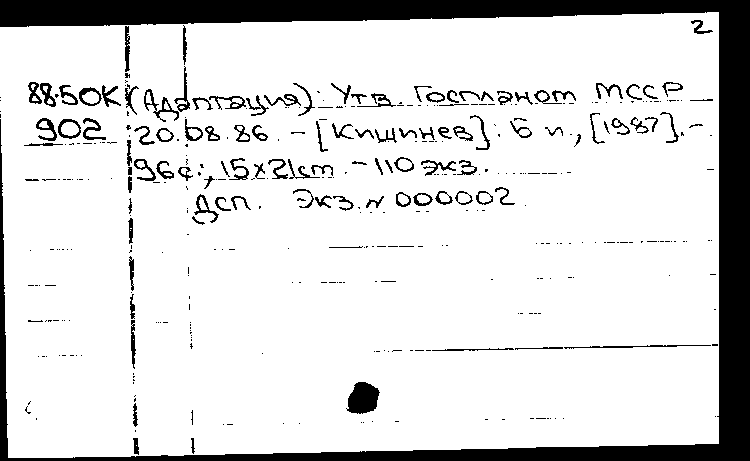 2
88-50K (Адаптация): Утв. Госпланом МССР
902 20.08.86. - [Кишинев]: Б и., [1987]. -
96 с.; 15×21cm. - 110 экз.
Дсп. Экз. N 000002